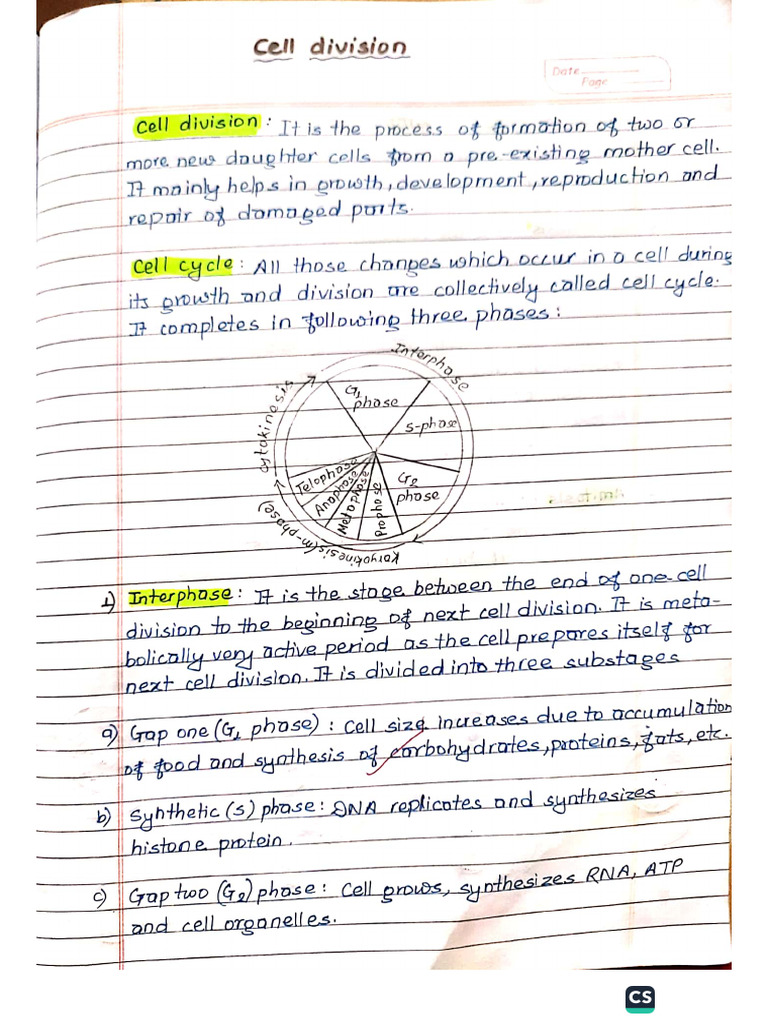 Cell division
Date
Page
Cell division : It is the process of formation of two or
more new daughter cells from a pre-existing mother cell.
It mainly helps in growth, development, reproduction and
repair of damaged parts.
Cell cycle : All those changes which occur in a cell during
its growth and division are collectively called cell cycle.
It completes in following three phases :
Interphase
G1 phase
S-phase
G2 phase
Prophase
Metaphase
Anaphase
Telophase
Karyokinesis (M-phase)
Cytokinesis
1) Interphase : It is the stage between the end of one cell
division to the beginning of next cell division. It is meta-
bolically very active period as the cell prepares itself for
next cell division. It is divided into three substages
a) Gap one (G1 phase) : Cell size increases due to accumulation
of food and synthesis of carbohydrates, proteins, fats, etc.
b) Synthetic (S) phase : DNA replicates and synthesizes
histone protein.
c) Gap two (G2) phase : Cell grows, synthesizes RNA, ATP
and cell organelles.
CS